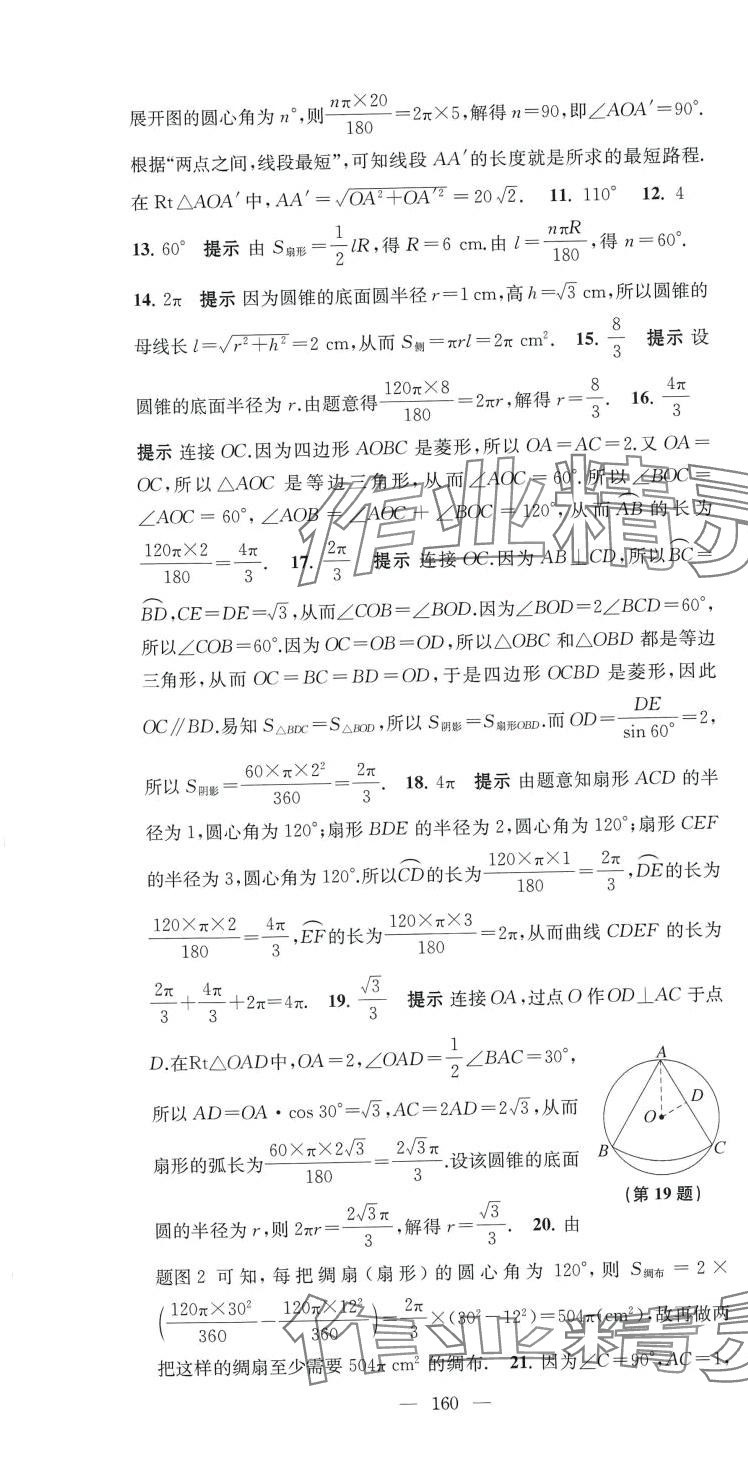 展开图的圆心角为 n°,则 nπ×20/180=2π×5,解得 n=90,即∠AOA′=90°.
根据“两点之间,线段最短”,可知线段 AA′的长度就是所求的最短路程.
在 Rt△AOA′中,AA′=√(OA²+OA′²)=20√2. 11. 110° 12. 4
13. 60° 提示 由 S扇形=1/2 lR,得 R=6 cm.由 l=nπR/180,得 n=60°.
14. 2π 提示 因为圆锥的底面圆半径 r=1 cm,高 h=√3 cm,所以圆锥的
母线长 l=√(r²+h²)=2 cm,从而 S侧=πrl=2π cm². 15. 8/3 提示 设
圆锥的底面半径为 r.由题意得 120π×8/180=2πr,解得 r=8/3. 16. 4π/3
提示 连接 OC.因为四边形 AOBC 是菱形,所以 OA=AC=2.又 OA=
OC,所以 △AOC 是等边三角形,从而 ∠AOC=60°.所以 ∠BOC=
∠AOC=60°,∠AOB=∠AOC+∠BOC=120°,从而 ⌒AB 的长为
120π×2/180=4π/3. 17. 2π/3 提示 连接 OC.因为 AB⊥CD,所以 ⌒BC=
⌒BD,CE=DE=√3,从而∠COB=∠BOD.因为∠BOD=2∠BCD=60°,
所以∠COB=60°.因为 OC=OB=OD,所以△OBC 和△OBD 都是等边
三角形,从而 OC=BC=BD=OD,于是四边形 OCBD 是菱形,因此
OC∥BD.易知 S△BDC=S△BOD,所以 S阴影=S扇形OBD.而 OD=DE/sin 60°=2,
所以 S阴影=60×π×2²/360=2π/3. 18. 4π 提示 由题意知扇形 ACD 的半
径为 1,圆心角为 120°;扇形 BDE 的半径为 2,圆心角为 120°;扇形 CEF
的半径为 3,圆心角为 120°.所以⌒CD的长为 120×π×1/180=2π/3,⌒DE的长为
120×π×2/180=4π/3,⌒EF的长为 120×π×3/180=2π,从而曲线 CDEF 的长为
2π/3+4π/3+2π=4π. 19. √3/3 提示 连接 OA,过点 O 作 OD⊥AC 于点
D.在Rt△OAD中,OA=2,∠OAD=1/2∠BAC=30°,
所以 AD=OA·cos 30°=√3,AC=2AD=2√3,从而
扇形的弧长为 60×π×2√3/180=2√3π/3.设该圆锥的底面
圆的半径为 r,则 2πr=2√3π/3,解得 r=√3/3. 20. 由
A
D
O
B
C
(第 19 题)
题图 2 可知,每把绸扇(扇形)的圆心角为 120°,则 S绸布=2×
(120π×30²/360-120π×12²/360)=2π/3×(30²-12²)=504π(cm²),故再做两
把这样的绸扇至少需要 504π cm² 的绸布. 21. 因为∠C=90°,AC=1,
— 160 —
作业精灵
作业精灵